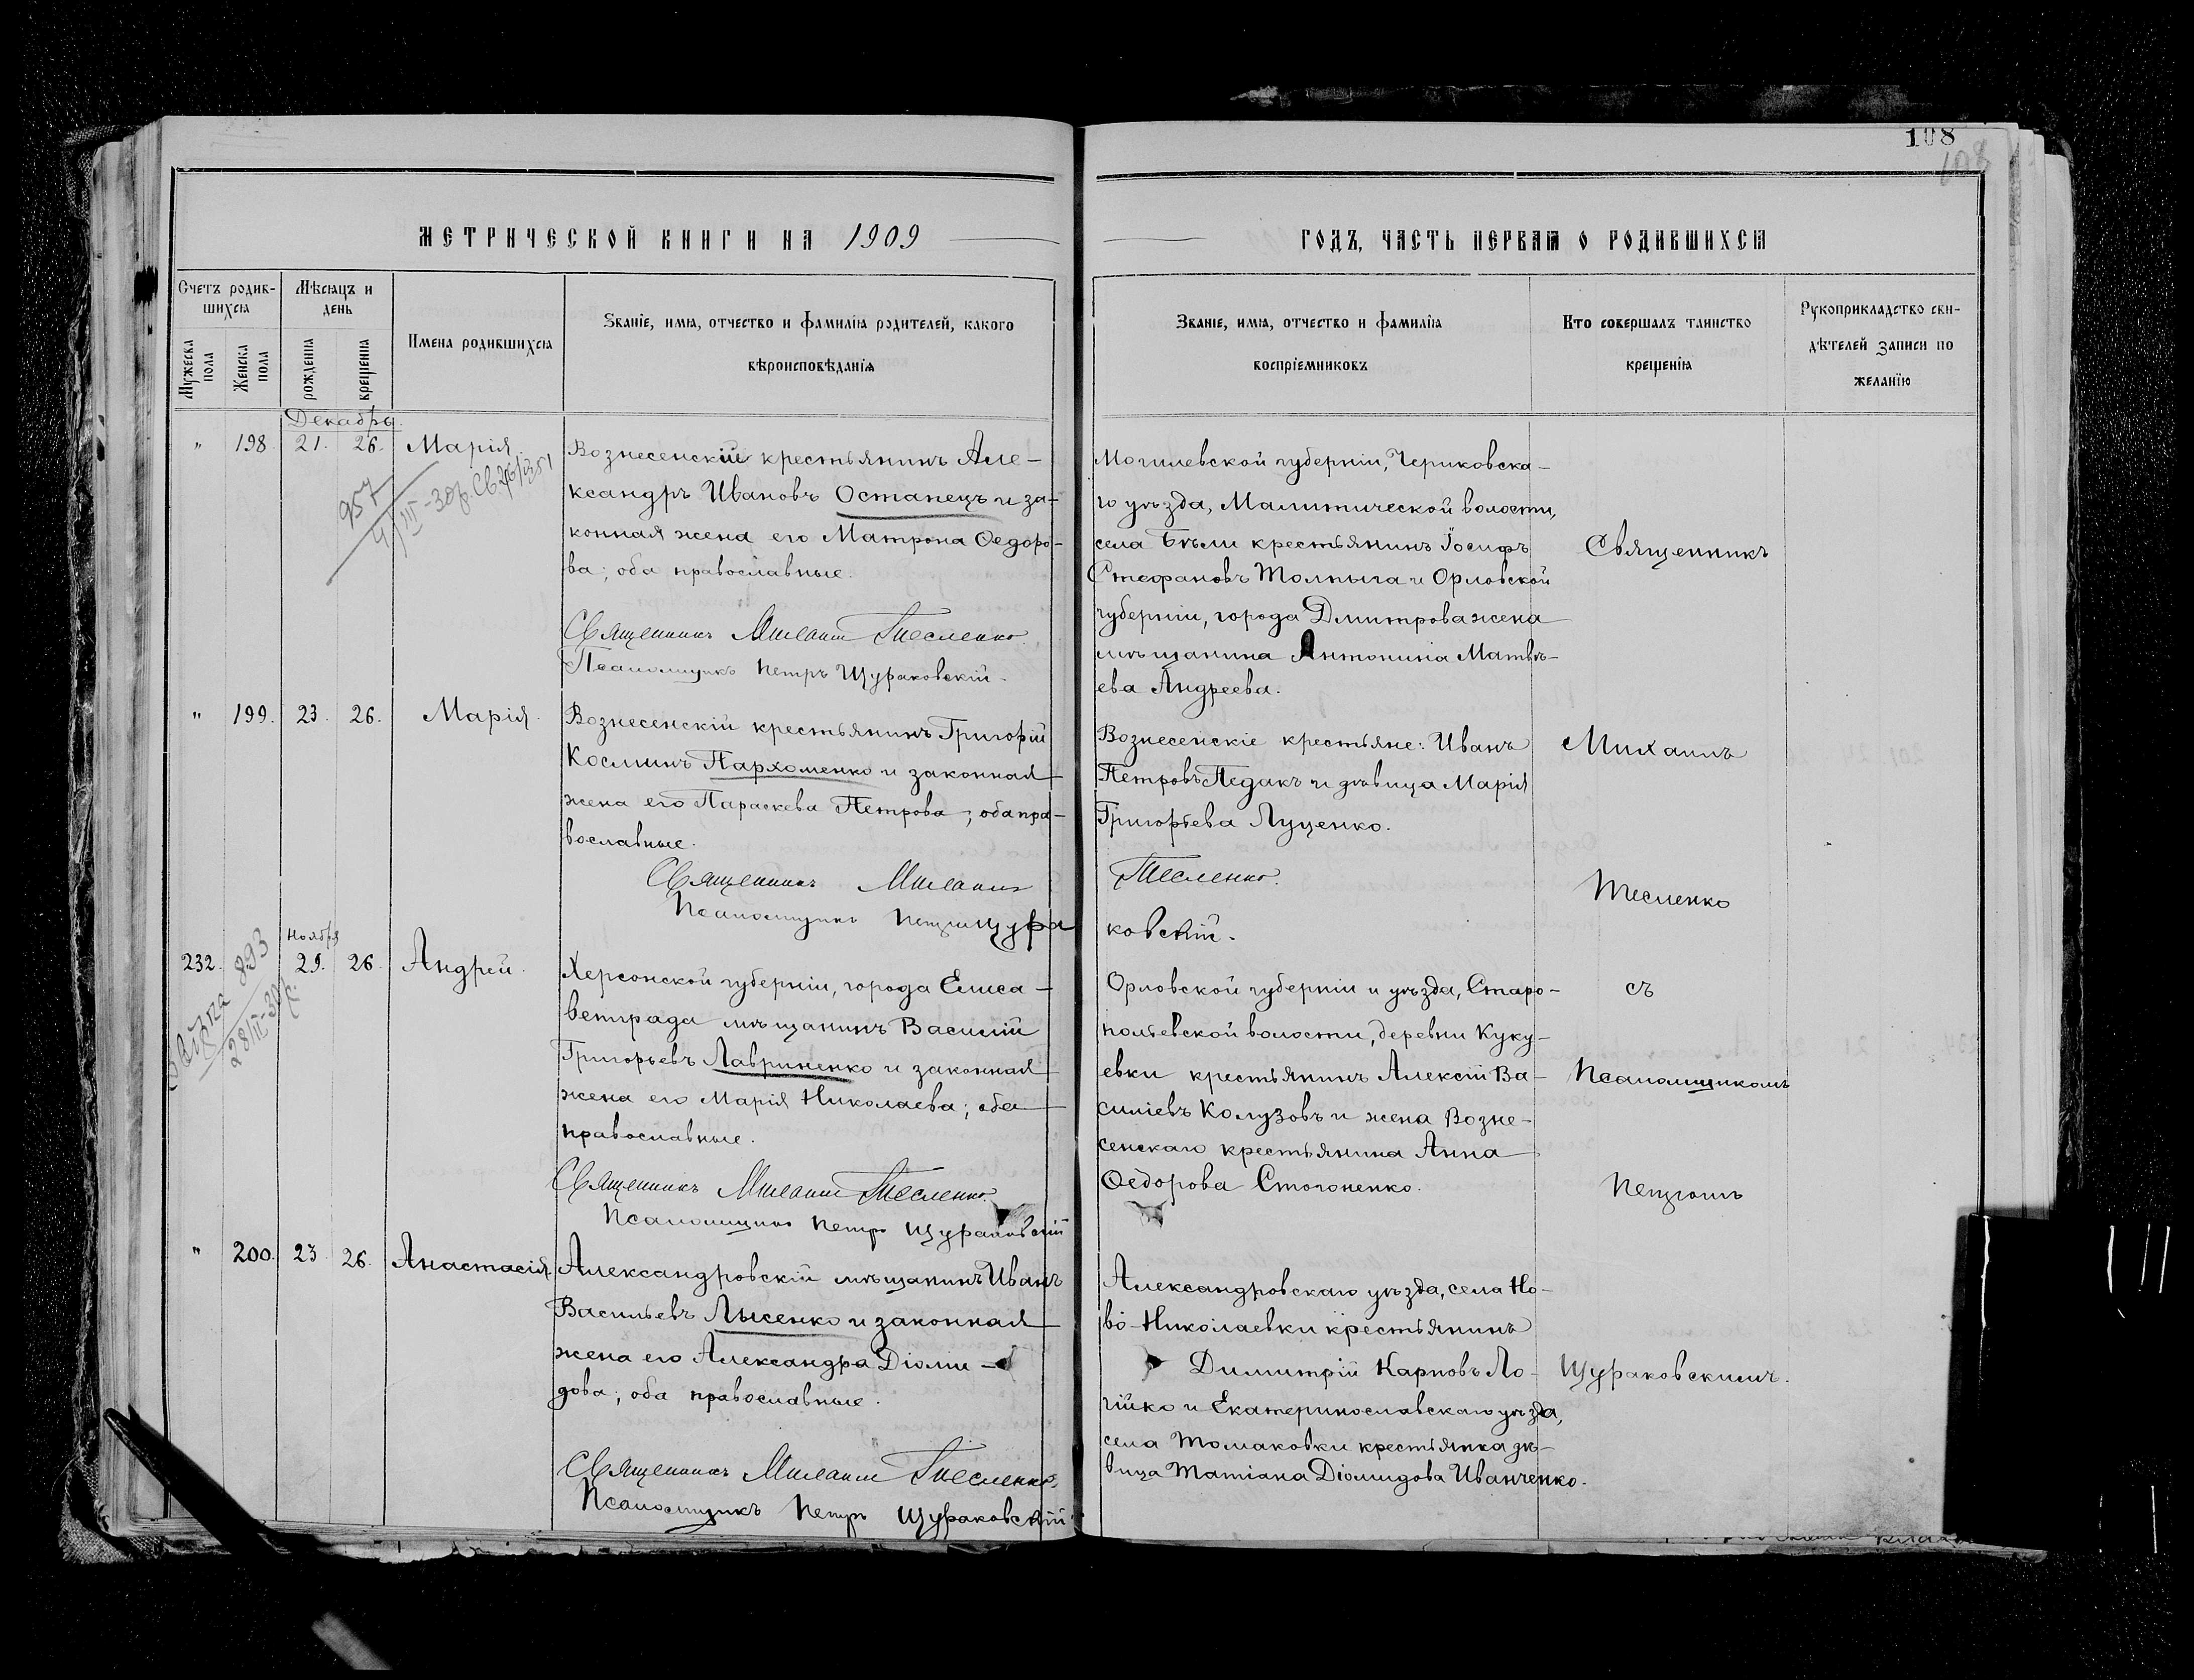 108
108
МЕТРИЧЕСКОЙ КНИГИ НА 1909
ГОДЪ, ЧАСТЬ ПЕРВАЯ О РОДИВШИХСЯ
Счетъ родив-
шихся
Мужеска
пола
Женска
пола
Мѣсяцъ и
день
рожденія
крещенія
Имена родившихся
Званіе, имя, отчество и фамилія родителей, какого
вѣроисповѣданія
Званіе, имя, отчество и фамилія
воспріемниковъ
Кто совершалъ таинство
крещенія
Рукоприкладство сви-
дѣтелей записи по
желанію
Декабрь
" 198 21. 26. Марія
957
Вознесенскій крестьянинъ Але-
ксандръ Ивановъ Останецъ и за-
конная жена его Матрона Ѳедоро-
ва; оба православные.
Священникъ Михаилъ Тесленко.
Псаломщикъ Петръ Щураковскій.
Могилевской губерніи, Чериковска-
го уѣзда, Малитической волости,
села Бѣли крестьянинъ Іосифъ
Стефановъ Толпыга и Орловской
губерніи, города Дмитрова жена
мѣщанина Антонина Матвѣ-
ева Андреева.
" 199. 23. 26. Марія.
Вознесенскій крестьянинъ Григорій
Косминъ Пархоменко и законная
жена его Параскева Петрова; оба пра-
вославные.
Священникъ Михаилъ
Псаломщикъ Петръ Щура
Вознесенскіе крестьяне: Иванъ
Петровъ Педакъ и дѣвица Марія
Григорьева Луценко.
Тесленко.
ковскій.
232. Ноября 29. 26. Андрей.
893
28/II-30 г.
Херсонской губерніи, города Елиса-
ветграда мѣщанинъ Василій
Григорьевъ Лавриненко и законная
жена его Марія Николаева; оба
православные.
Священникъ Михаилъ Тесленко.
Псаломщикъ Петръ Щураковскій
Орловской губерніи и уѣзда, Старо-
польевской волости, деревни Куку-
евки крестьянинъ Алексій Ва-
силіевъ Колузовъ и жена Возне-
сенскаго крестьянина Анна
Ѳедорова Стогоненко.
" 200. 23. 26. Анастасія.
Александровскій мѣщанинъ Иванъ
Васильевъ Лысенко и законная
жена его Александра Діоми-
дова; оба православные.
Священникъ Михаилъ Тесленко.
Псаломщикъ Петръ Щураковскій
Александровскаго уѣзда, села Но-
во-Николаевки крестьянинъ
Димитрій Карповъ Ло-
гійко и Екатеринославскаго уѣзда,
села Томаковки крестьянка дѣ-
вица Татіана Діомидова Иванченко.
Священникъ
Михаилъ
Тесленко
съ
Псаломщикомъ
Петромъ
Щураковскимъ.